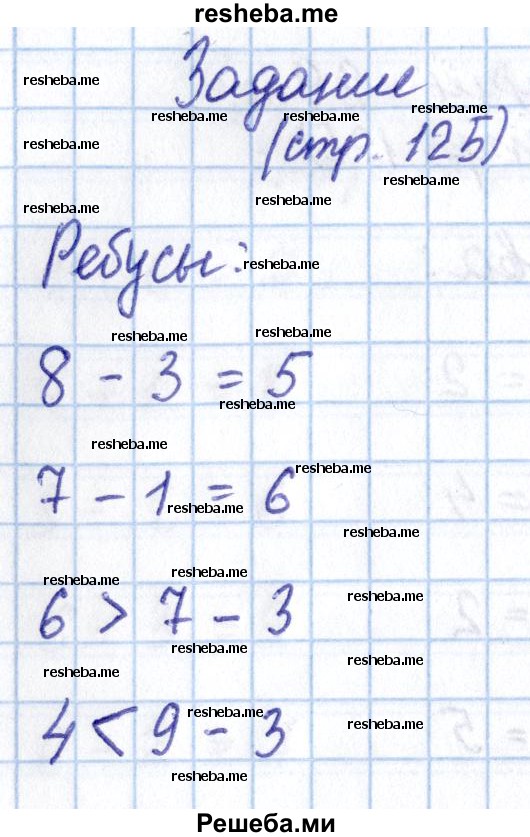 resheba.me
Задание
resheba.me
resheba.me resheba.me resheba.me
(стр. 125)
resheba.me
resheba.me
resheba.me
resheba.me
Ребусы:
resheba.me
resheba.me
resheba.me
8 - 3 = 5
resheba.me
resheba.me
resheba.me
7 - 1 = 6
resheba.me
resheba.me
resheba.me
resheba.me
resheba.me
6 > 7 - 3
resheba.me
resheba.me
resheba.me
resheba.me
resheba.me
4 < 9 - 3
resheba.me
Решеба.ми